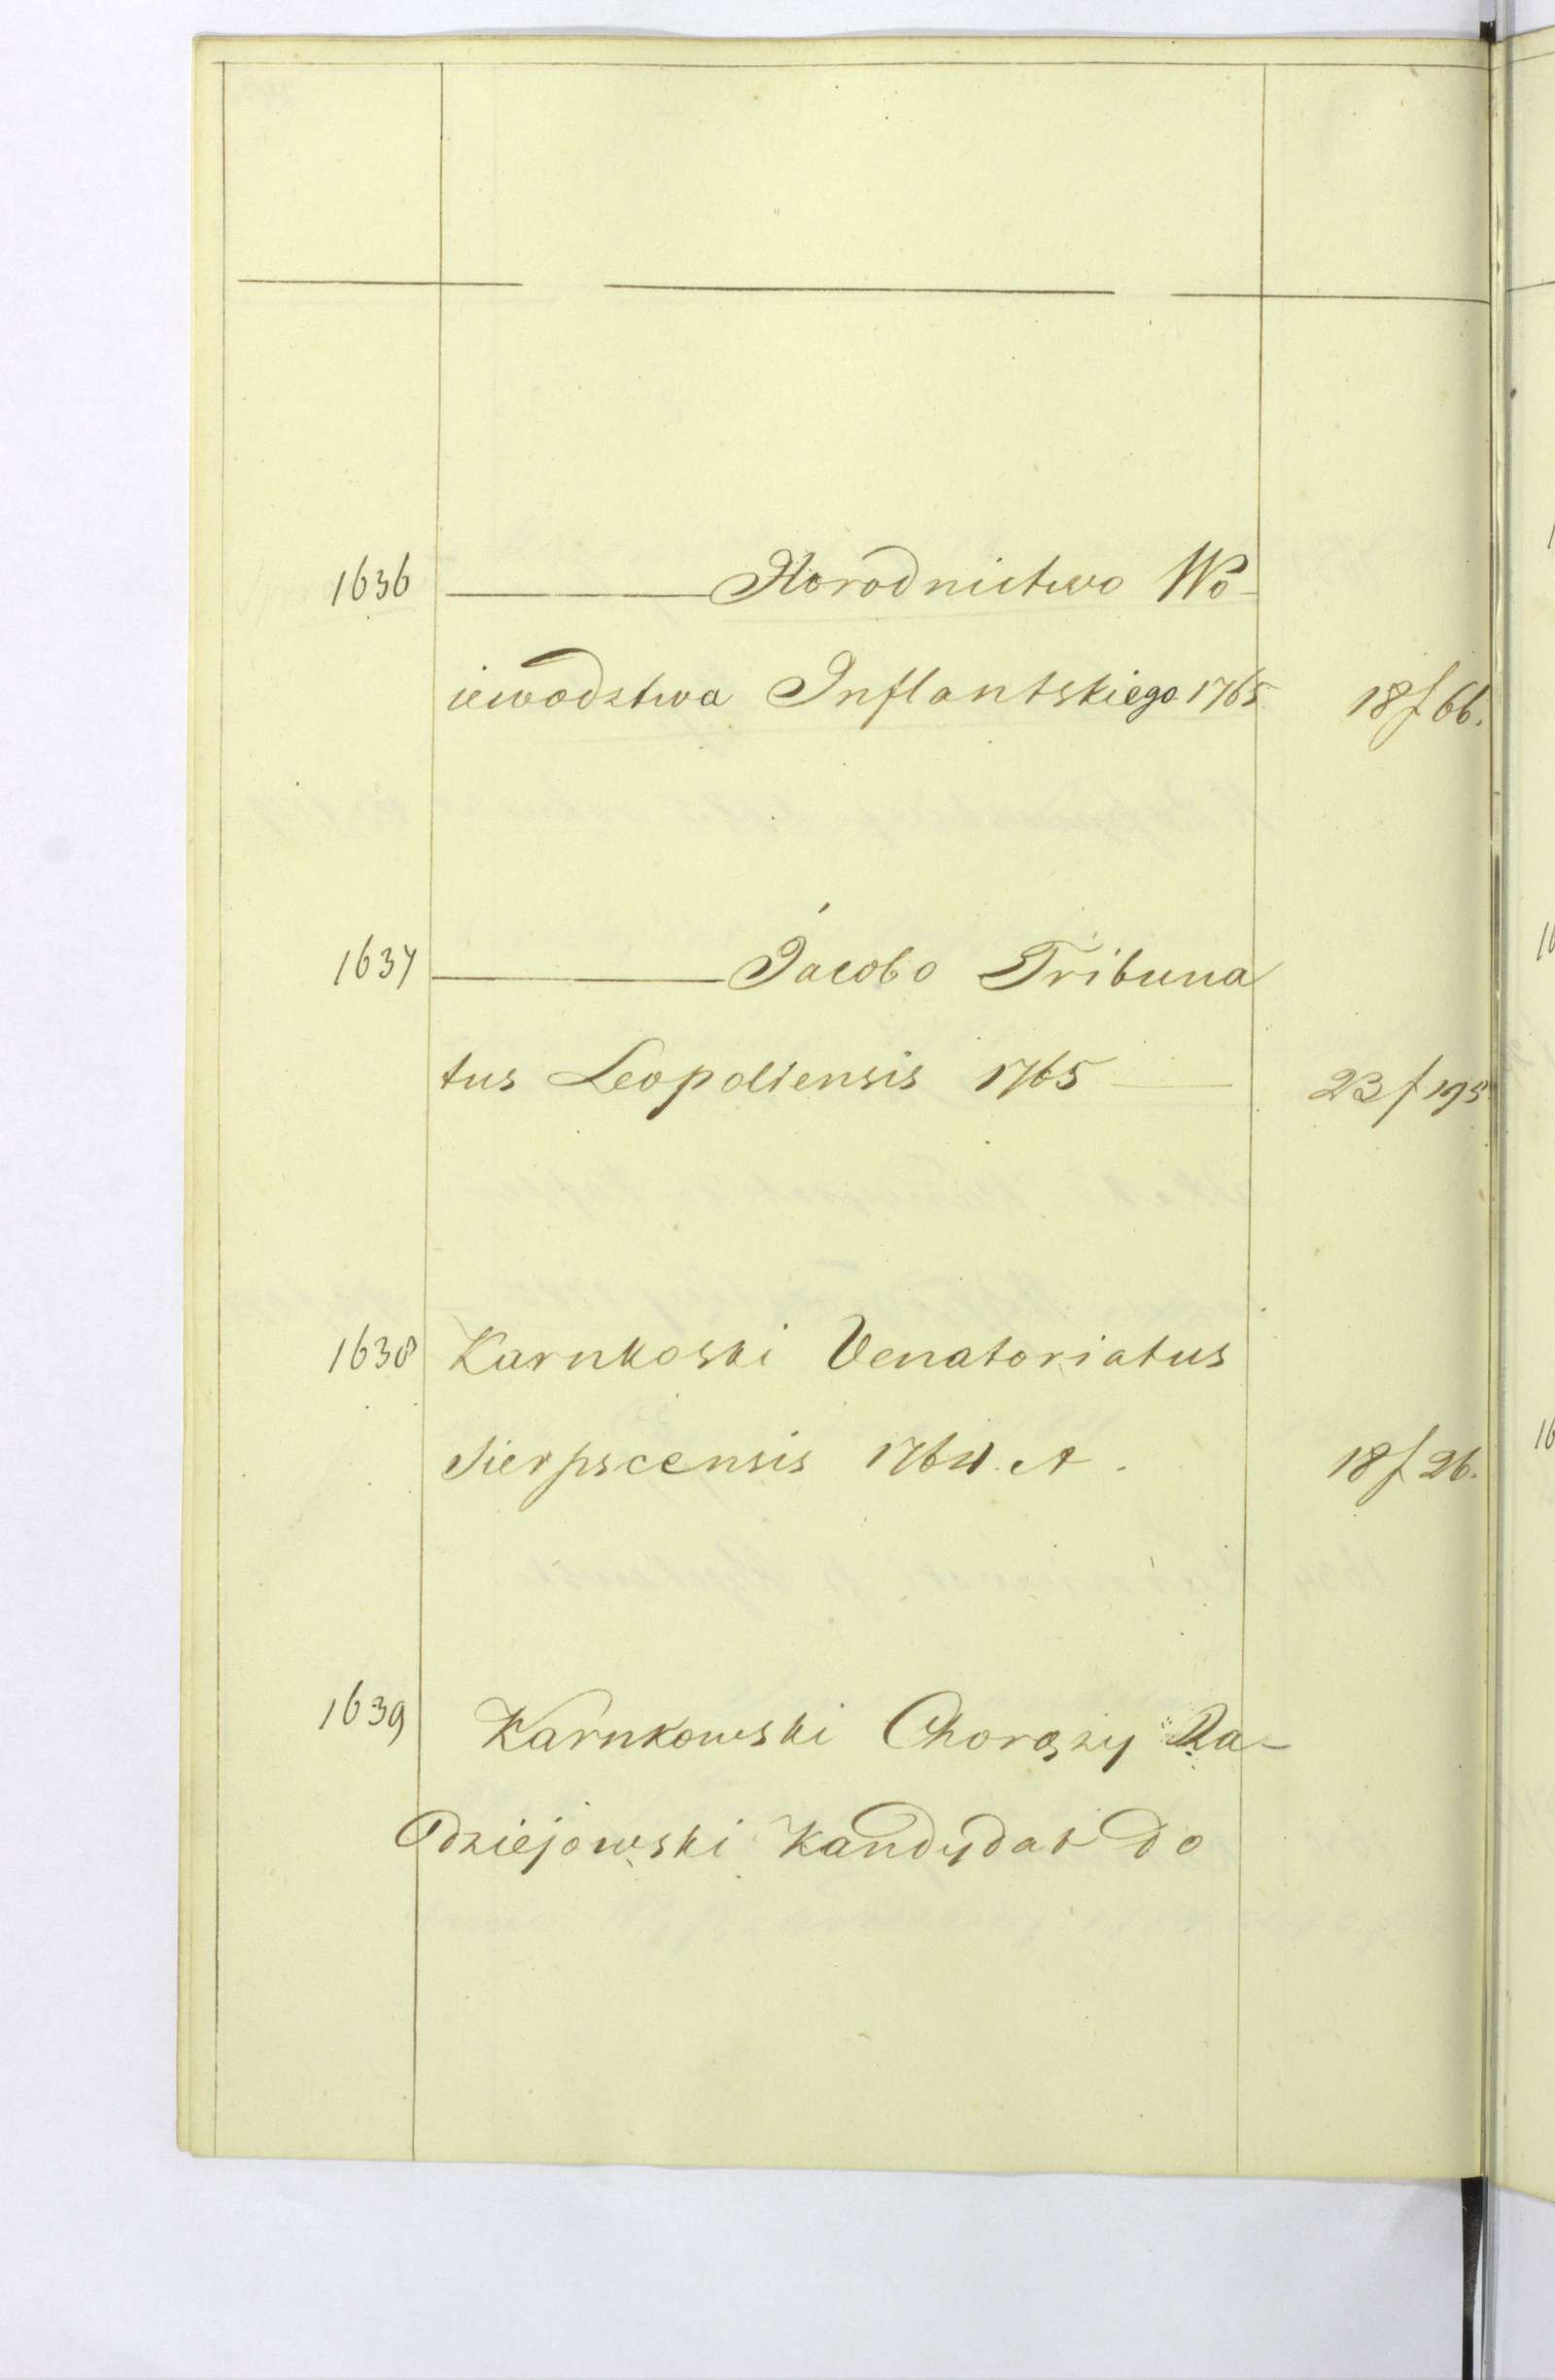 1636 ——— Horodnictwo Wo-
iewodztwa Inflantskiego 1765 18 f 66.
1637 ——— Jacobo Tribuna
tus Leopoliensis 1765 — 23 f 195
1638 Karnkoski Venatoriatus
Sierpscensis 1764. A. 18 f 26.
1639 Karnkowski Chorąży Ra-
dziejowski Kandydat do